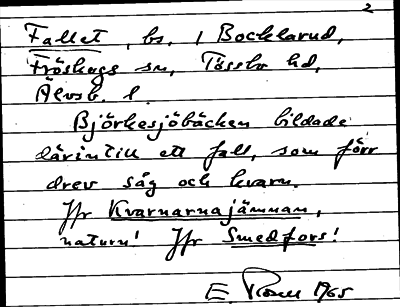 2
Fallet, bs. / Bocklarud,
Fröskogs sn, Tössbo hd,
Älvsb. l.
Björkesjöbäcken bildade
därintill ett fall, som förr
drev såg och kvarn.
Jfr Kvarnarnajämnan,
naturn! Jfr Smedfors!
E. 1965